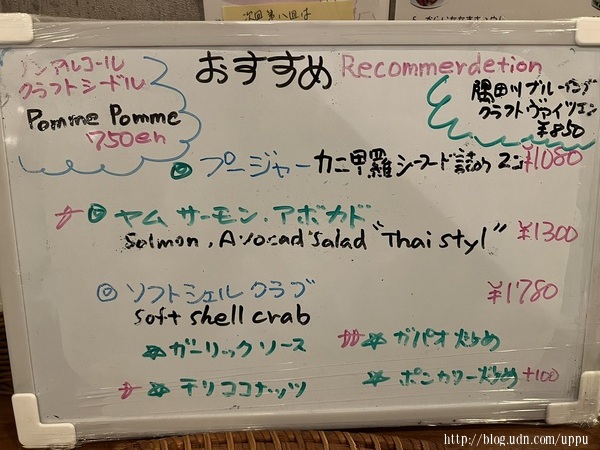 次回第八回は
ノンアルコール
クラフトシードル
Pomme Pomme
750en
おすすめ Recommerdetion
隅田川ブルーイング
クラフトヴァイツェン
¥850
プージャー カニ甲羅シーフード詰め 2コ ¥1080
ヤム サーモン・アボカド
Salmon, Avocad Salad "Thai styl" ¥1300
ソフトシェル クラブ ¥1780
soft shell crab
ガーリックソース
ガパオ炒め
チリココナッツ
ポンカリー炒め +100
http://blog.udn.com/uppu